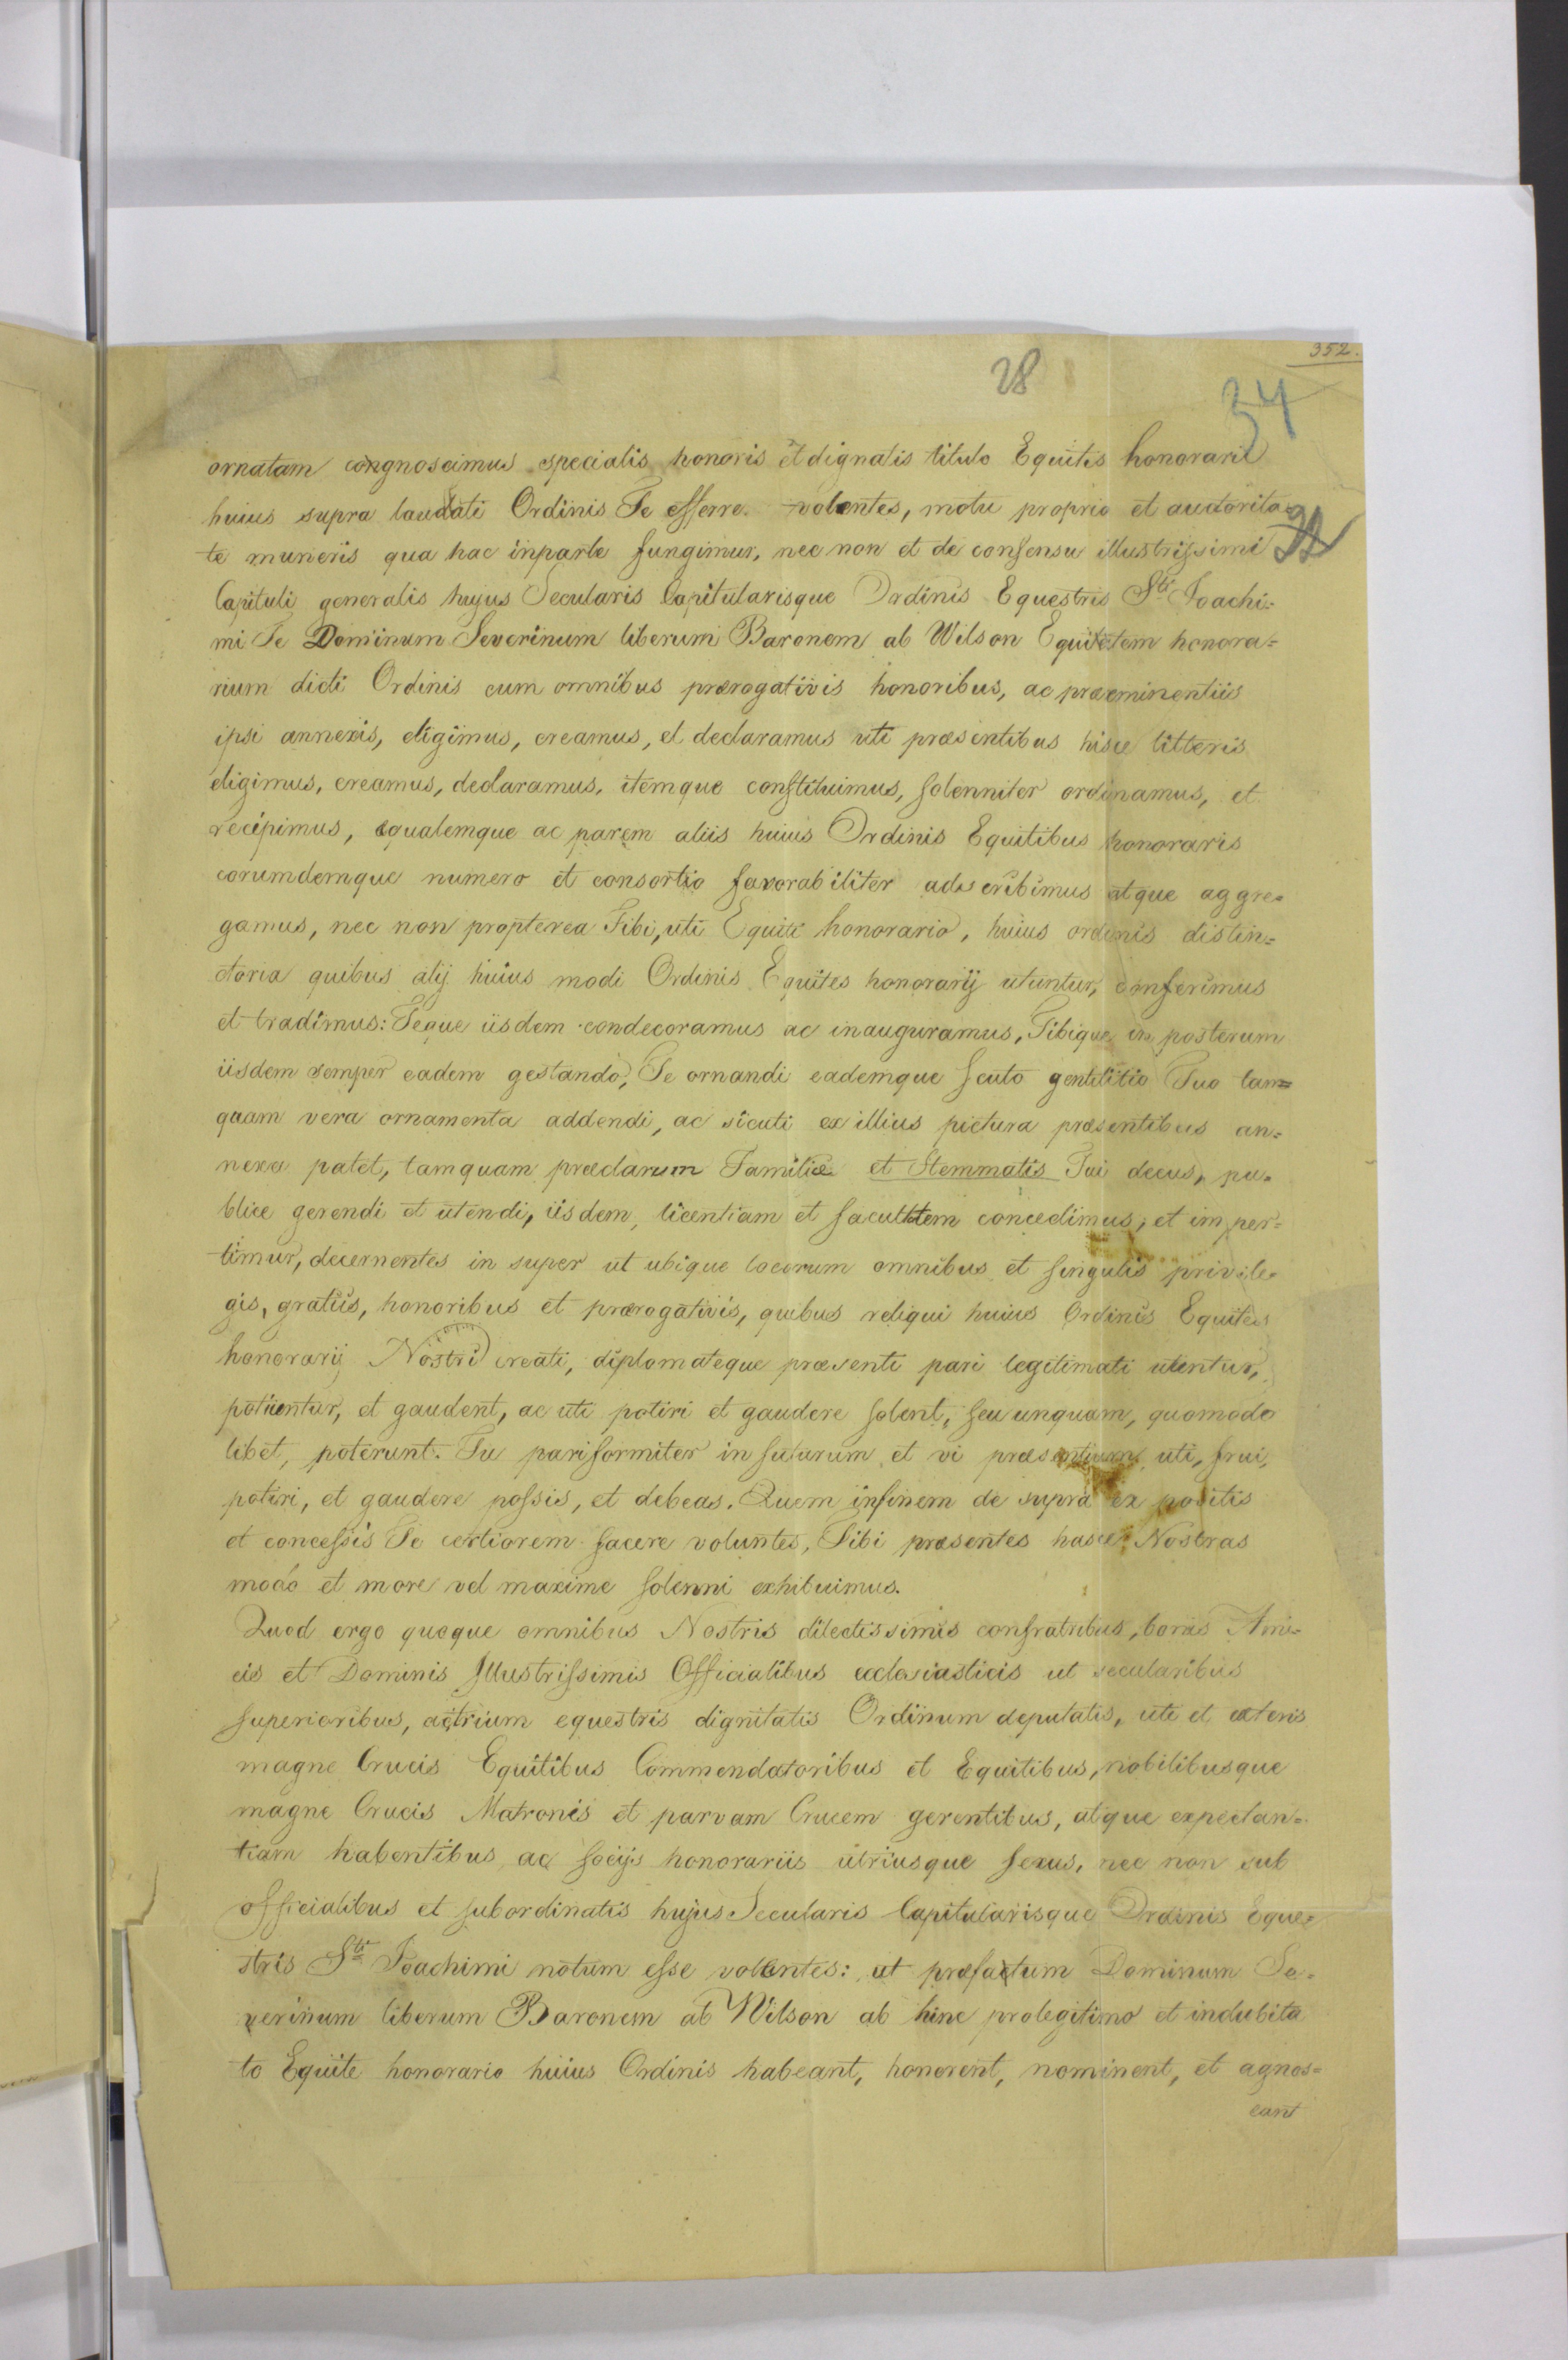 352.
28
34
ornatam congnoscimus specialis honoris et dignatis titulo Equitis honorarii
huius supra laudati Ordinis Te efferre volentes, motu proprio et auctorita=
te muneris qua hac inparte fungimur, nec non et de consensu illustrissimi
Capituli generalis hujus Secularis Capitularisque Ordinis Equestris Sti Joachi=
mi Te Dominum Severinum liberum Baronem ab Wilson Equitetem honora=
rium dicti Ordinis cum omnibus prærogativis honoribus, ac præeminentiis
ipsi annexis, eligimus, creamus, et declaramus uti præsentibus hisce litteris
eligimus, creamus, declaramus, itemque constituimus, solenniter ordinamus, et
recipimus, equalemque ac parem aliis huius Ordinis Equitibus honoraris
eorumdemque numero et consortio favorabiliter adscribimus atque aggre=
gamus, nec non propterea Tibi, uti Equiti honorario, huius ordinis distin=
ctoria quibus alij huius modi Ordinis Equites honorarij utuntur, conferimus
et tradimus: Teque iisdem condecoramus ac inauguramus, Tibique in posterum
iisdem semper eadem gestando, Te ornandi eademque scuto gentilitio Tuo tam=
quam vera ornamenta addendi, ac sicuti ex illius pictura præsentibus an=
nexa patet, tamquam præclarum Familiæ et Stemmatis Tui decus, pu=
blice gerendi et utendi, iisdem, licentiam et faculttem concedimus, et imper=
timur, decernentes in super ut ubique locorum omnibus et singulis privile=
gis, gratiis, honoribus et prærogativis, quibus reliqui huius Ordinis Equites
honorarij Nostri creati, diplomateque præsenti pari legitimati utentur,
potiuntur, et gaudent, ac uti potiri et gaudere solent, seu unquam, quomodo
libet, poterunt. Tu pariformiter in futurum et vi præsentium uti, frui,
potiri, et gaudere possis, et debeas. Quem infinem de supra ex positis
et concessis Te certiorem facere voluntes, Tibi præsentes hasce Nostras
modo et more vel maxime solenni exhibuimus.
Quod ergo quoque omnibus Nostris dilectissimis confratribus, bonis Ami=
cis et Dominis Illustrissimis Officialibus ecclesiasticis ut secularibus
superioribus, actrium equestris dignitatis Ordinum deputatis, uti et exteris
magne Crucis Equitibus Commendatoribus et Equitibus, nobilibusque
magne Crucis Matronis et parvam Crucem gerentibus, atque expectan=
tiam habentibus ac socijs honorariis utriusque sexus, nec non sub
officialibus et subordinatis hujus Secularis Capitularisque Ordinis Eque=
stris Sti Joachimi notum esse volentes: ut præfactum Dominum Se=
verinum liberum Baronem ab Wilson ab hinc prolegitimo et indubita
to Equite honorario huius Ordinis habeant, honorent, nominent, et agnos=
cant